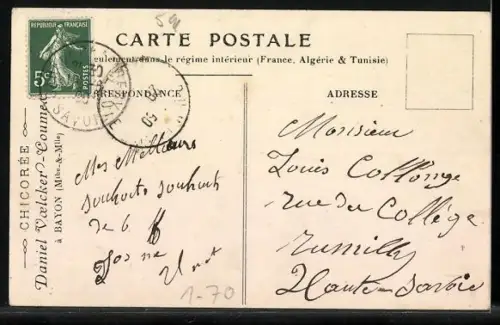 59
RÉPUBLIQUE FRANÇAISE
5c POSTES
CARTE POSTALE
seulement dans le régime intérieur (France, Algérie & Tunisie)
CORRESPONDANCE
ADRESSE
CHICORÉE
Daniel Vœlcker-Coumes
à BAYON (Mthe-&-Mlle)
SAVOIE
09
Mes Meilleurs
souhaits souhait
de b
Monsieur
Louis Collonge
rue du Collège
Rumilly
Haute-Savoie
1-70